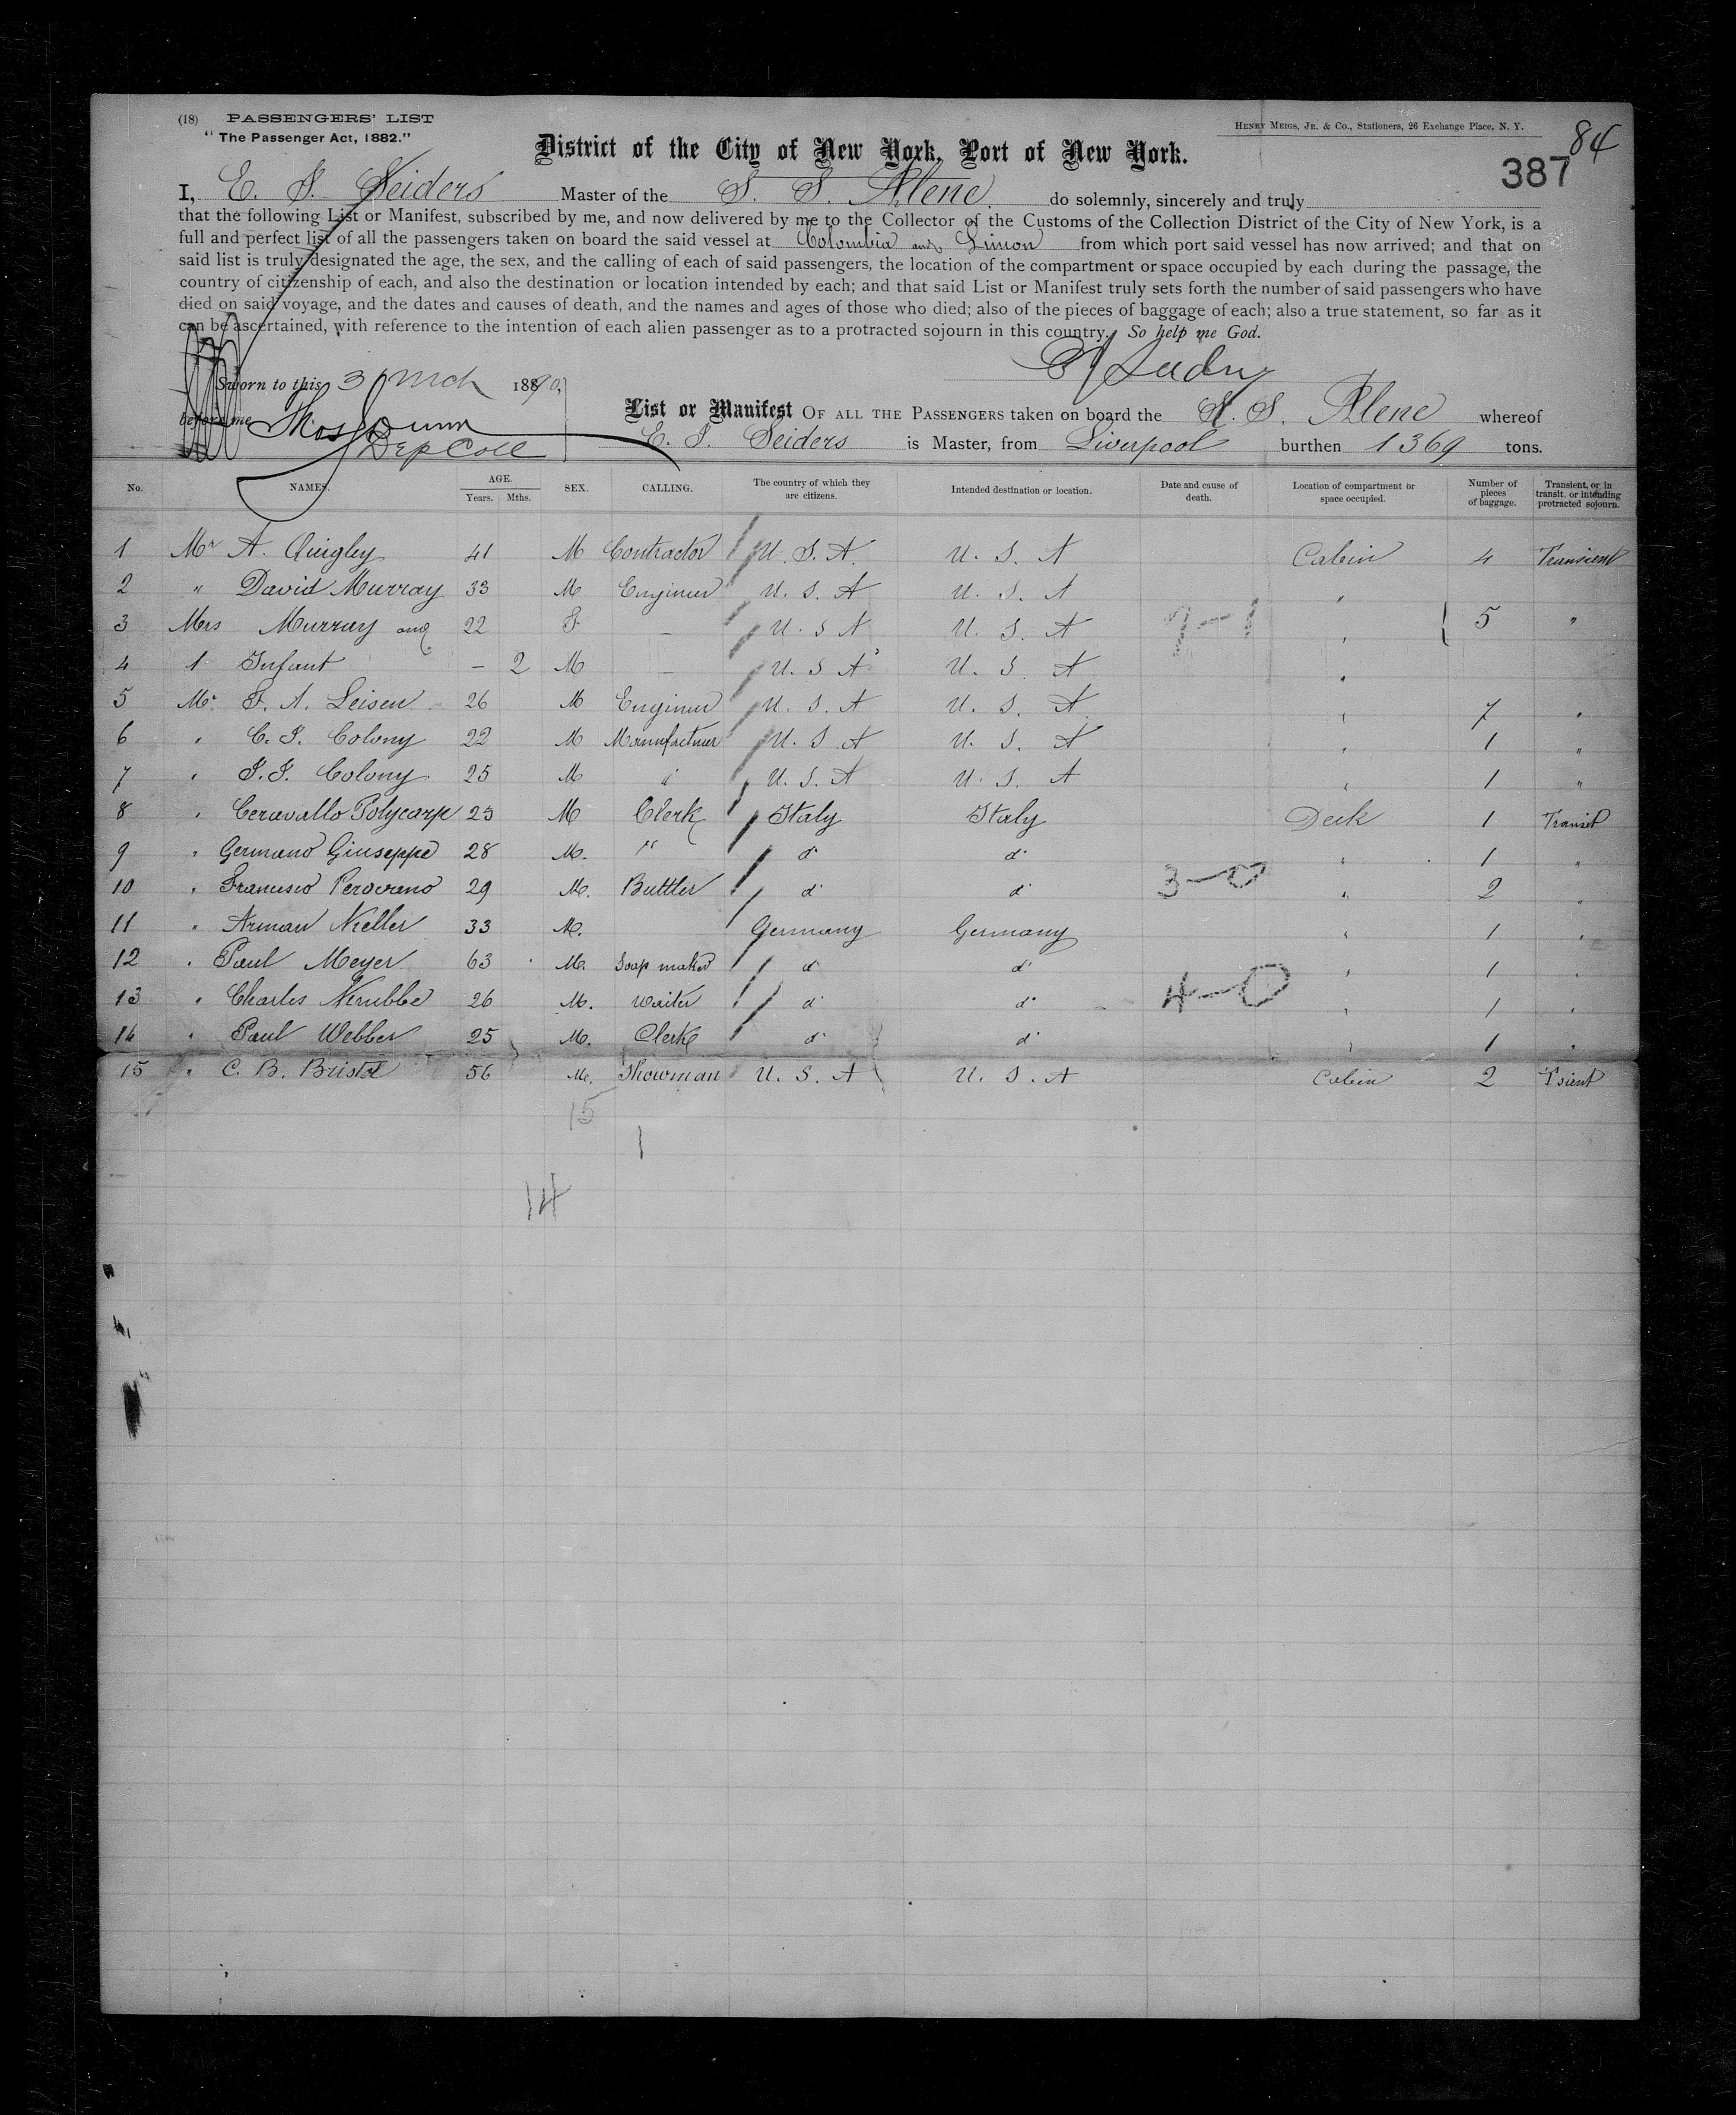 (18) PASSENGERS' LIST
"The Passenger Act, 1882."
HENRY MEIGS, JR. & CO., Stationers, 26 Exchange Place, N. Y.
84
387
District of the City of New York, Port of New York.
I, E. S. Seiders Master of the S. S. Alene. do solemnly, sincerely and truly
that the following List or Manifest, subscribed by me, and now delivered by me to the Collector of the Customs of the Collection District of the City of New York, is a
full and perfect list of all the passengers taken on board the said vessel at Colombia and Limon from which port said vessel has now arrived; and that on
said list is truly designated the age, the sex, and the calling of each of said passengers, the location of the compartment or space occupied by each during the passage, the
country of citizenship of each, and also the destination or location intended by each; and that said List or Manifest truly sets forth the number of said passengers who have
died on said voyage, and the dates and causes of death, and the names and ages of those who died; also of the pieces of baggage of each; also a true statement, so far as it
can be ascertained, with reference to the intention of each alien passenger as to a protracted sojourn in this country. So help me God.
Sworn to this 3 Mch 1890,
before me Thos Dunn
Dep Coll
List or Manifest OF ALL THE PASSENGERS taken on board the S. S. Alene whereof
E. S. Seiders is Master, from Liverpool burthen 1369 tons.
No. NAMES. AGE. Years. Mths. SEX. CALLING. The country of which they are citizens. Intended destination or location. Date and cause of death. Location of compartment or space occupied. Number of pieces of baggage. Transient, or in transit, or intending protracted sojourn.
1 Mr A. Quigley 41 M Contractor U. S. A. U. S. A Cabin 4 Transient
2 " David Murray 33 M Engineer U. S. A U. S. A "
3 Mrs Murray and 22 F. — U. S A U. S. A 7-1 " 5 "
4 1 Infant — 2 M — U. S A U. S. A "
5 Mr F. A. Leisen 26 M Engineer U. S. A U. S. A " 7 "
6 " C. J. Colony 22 M Manufacturer U. S. A U. S. A " 1 "
7 " J. J. Colony 25 M " U. S. A U. S. A " 1 "
8 " Ceravallo Polycarp 23 M Clerk Italy Italy Deck 1 Transit
9 " Germano Giuseppe 28 M. " do do " 1 "
10 " 29 M. Buttler do do 3-0 " 2 "
11 " Arman Keller 33 M. Germany Germany " 1 "
12 " Paul Meyer 63 M. Soap maker do do " 1 "
13 " Charles 26 M. waiter do do 4-0 " 1 "
14 " Paul Webber 25 M. Clerk do do " 1 "
15 " C. B. Bristol 56 M. Showman U. S. A U. S. A Cabin 2 Tsient
15
1
14